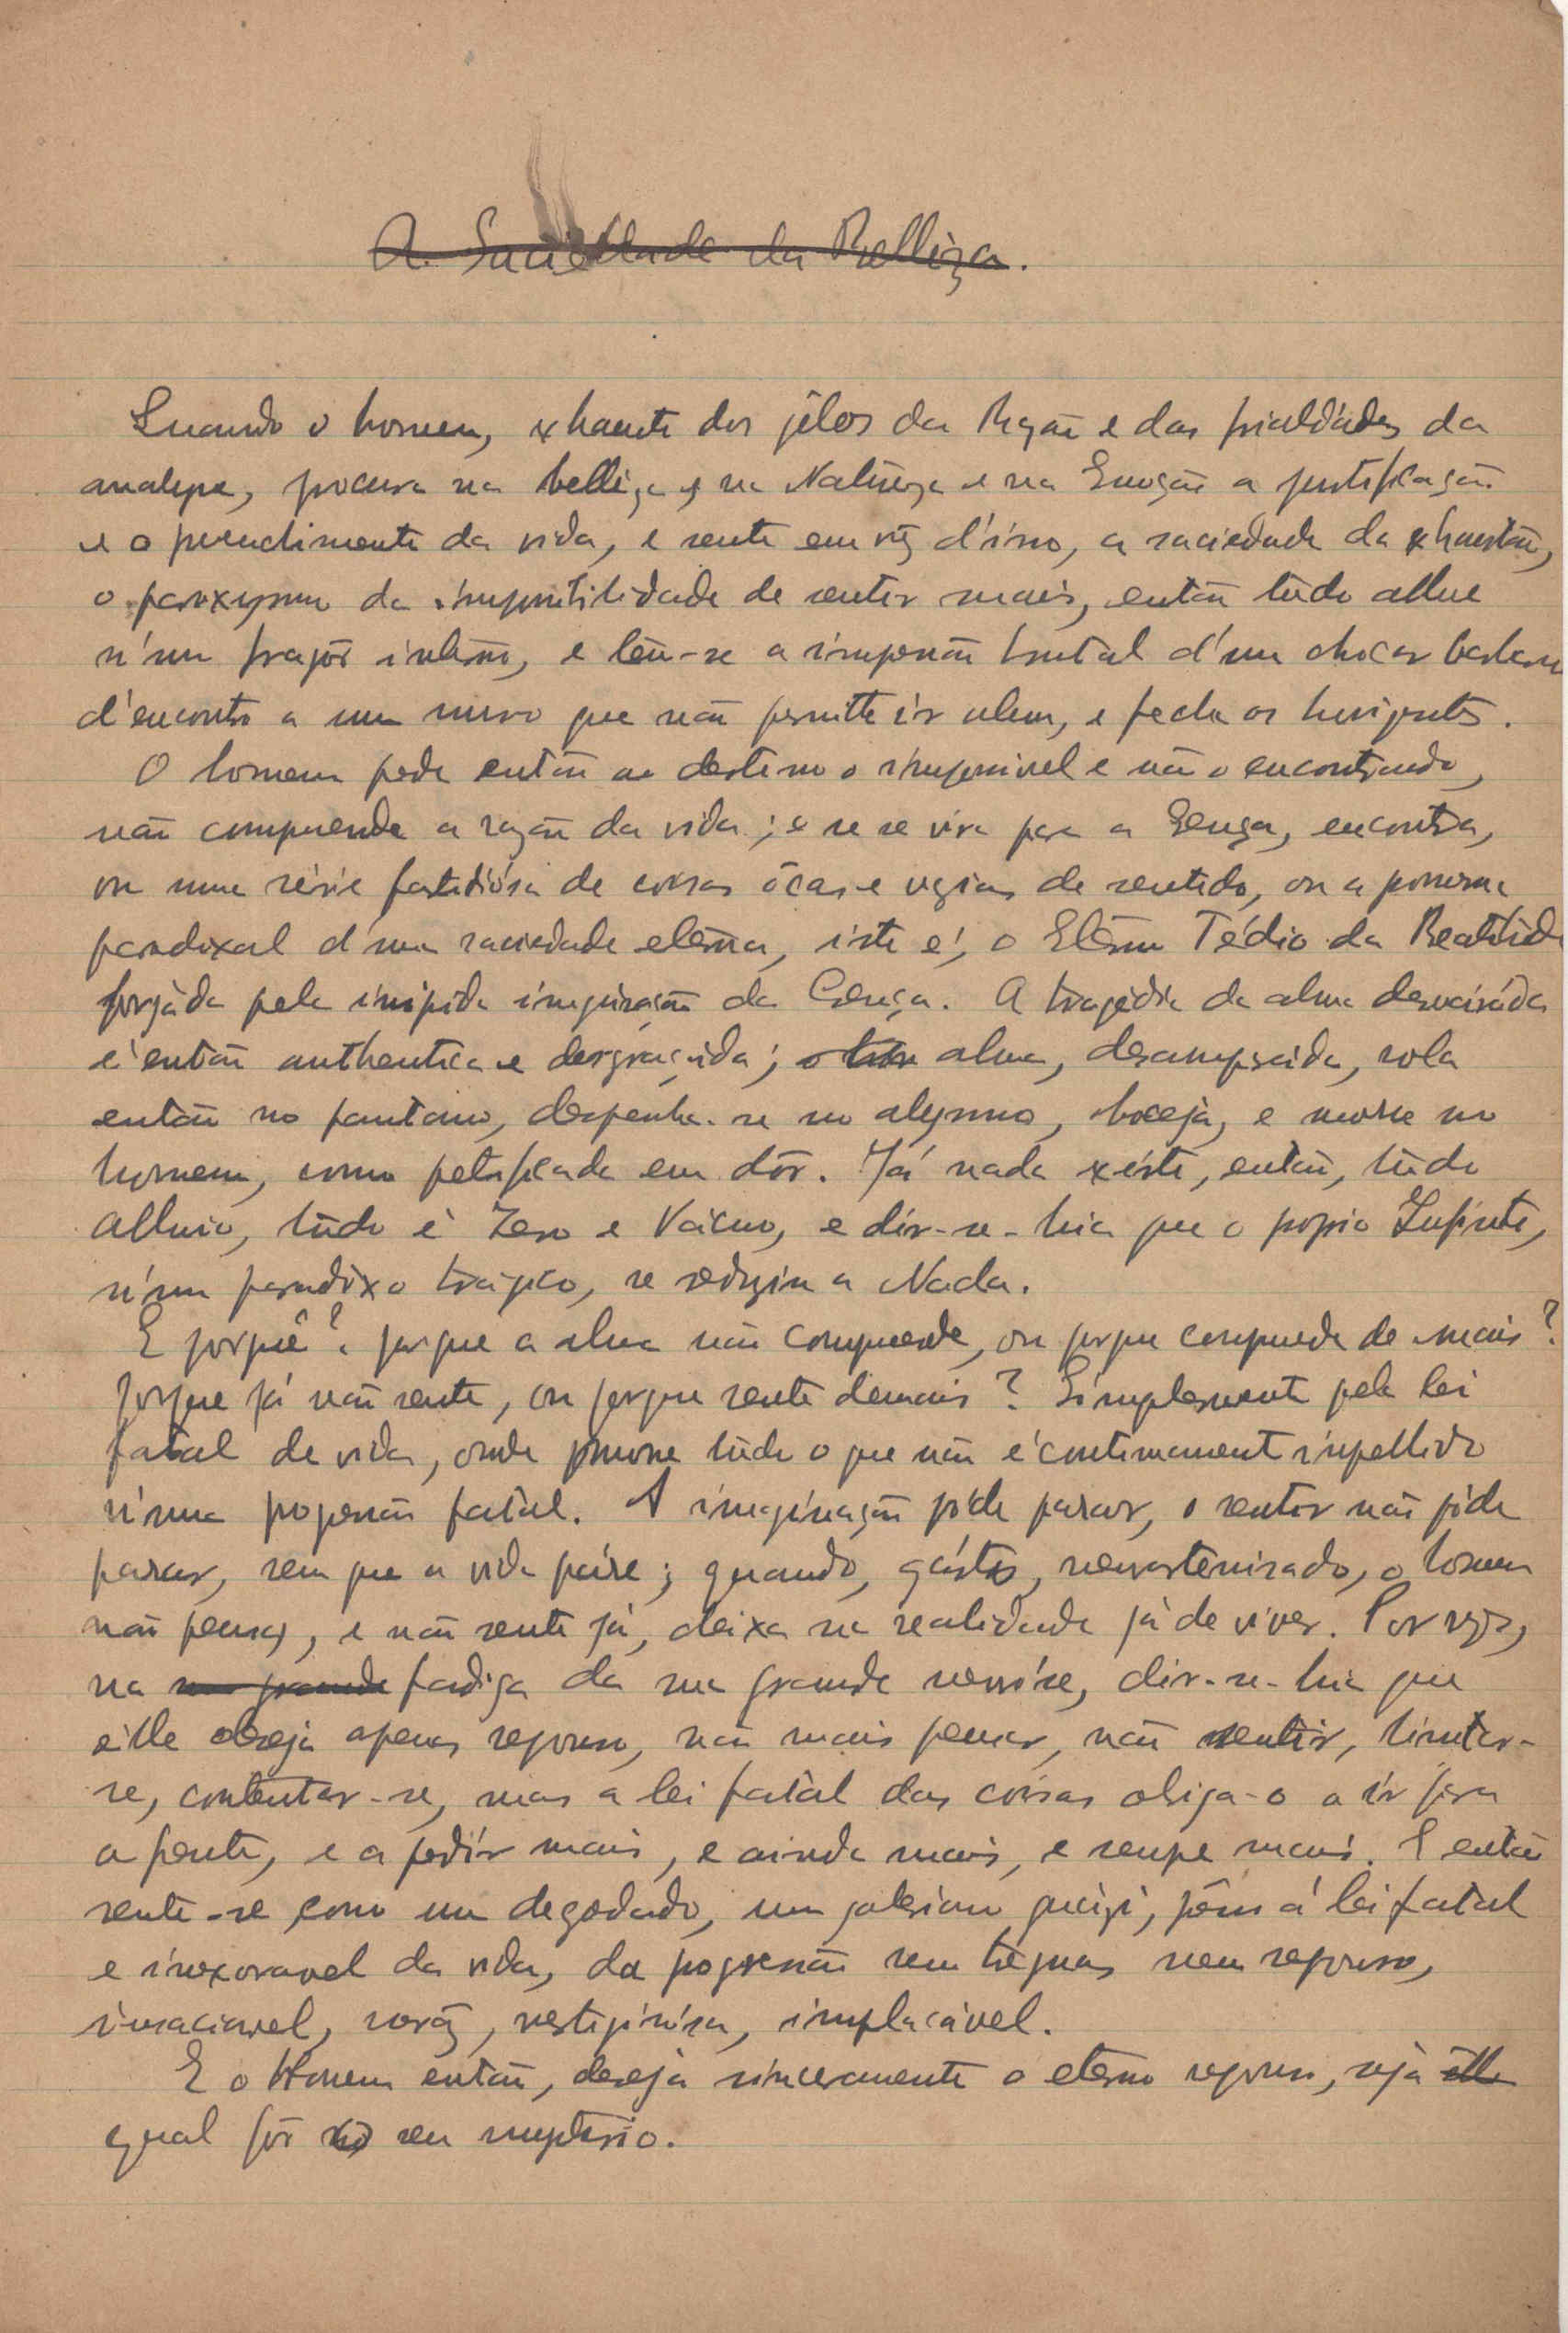 A Saciedade da Belleza.
Quando o homem, exhausto dos gêlos da Razão e das frialdádes da
analyse, procura na belleza e na Natureza e na Emoção a justificação
e o preenchimento da vida, e sente em vêz d'isso, a saciedade da exhaustão,
o paroxysmo da impossibilidade de sentir mais, então túdo allue
n'um fragôr intêrno, e têm-se a impressão brutal d'um chocar
d'encontro a um muro que não permitte ir alem, e fecha os horizontes.
O homem pede então ao destino o impossivel e não o encontrando,
não comprehende a razão da vida; e se se vira para a Crença, encontra,
ou uma série fastidiósa de coisas ôcas e vazias de sentido, ou a promessa
paradoxal d'uma saciedade etérna, isto é, o Etérno Tédio da Beatitude
forjáda pela insipida imaginação da Crença. A tragédia da alma desvairáda
é então authentica e desgraçáda; a alma, desamparáda, rola
então no pantano, despenha-se no abysmo, bocêja, e morre no
homem, como petrificada em dôr. Já nada existe, então, túdo
alluio, túdo é Zero e Vácuo, e dir-se-hia que o proprio Infinito,
n'um paradoxo trágico, se reduziu a Nada.
E porquê? porque a alma não comprehende, ou porque comprehende de mais?
Porque já não sente, ou porque sente demais? Simplesmente pela lei
fatal da vida, onde morre túdo o que não é continuamente impellido
n'uma progressão fatal. A imaginação póde parar, o sentir não póde
parar, sem que a vida páre; quando, gásto, neurastenisado, o homem
não pensa, e não sente já, deixa na realidade já de viver. Por vezes,
na sua grande fadiga da sua grande nevróse, dir-se-hia que
êlle deseja apenas repouso, não mais pensar, não sentir, limitar-
se, contentar-se, mas a lei fatal das coisas obriga-o a ir para
a frente, e a pedir mais, e ainda mais, e sempre mais. E então
sente-se como um degredado, um galeriano, prêso á lei fatal
e inexoravel da vida, da progressão sem tréguas nem repouso,
insaciavel, voráz, vertiginósa, implacável.
E o Homem então, deseja sinceramente o eterno repouso, seja êlle
qual fôr no seu mystério.